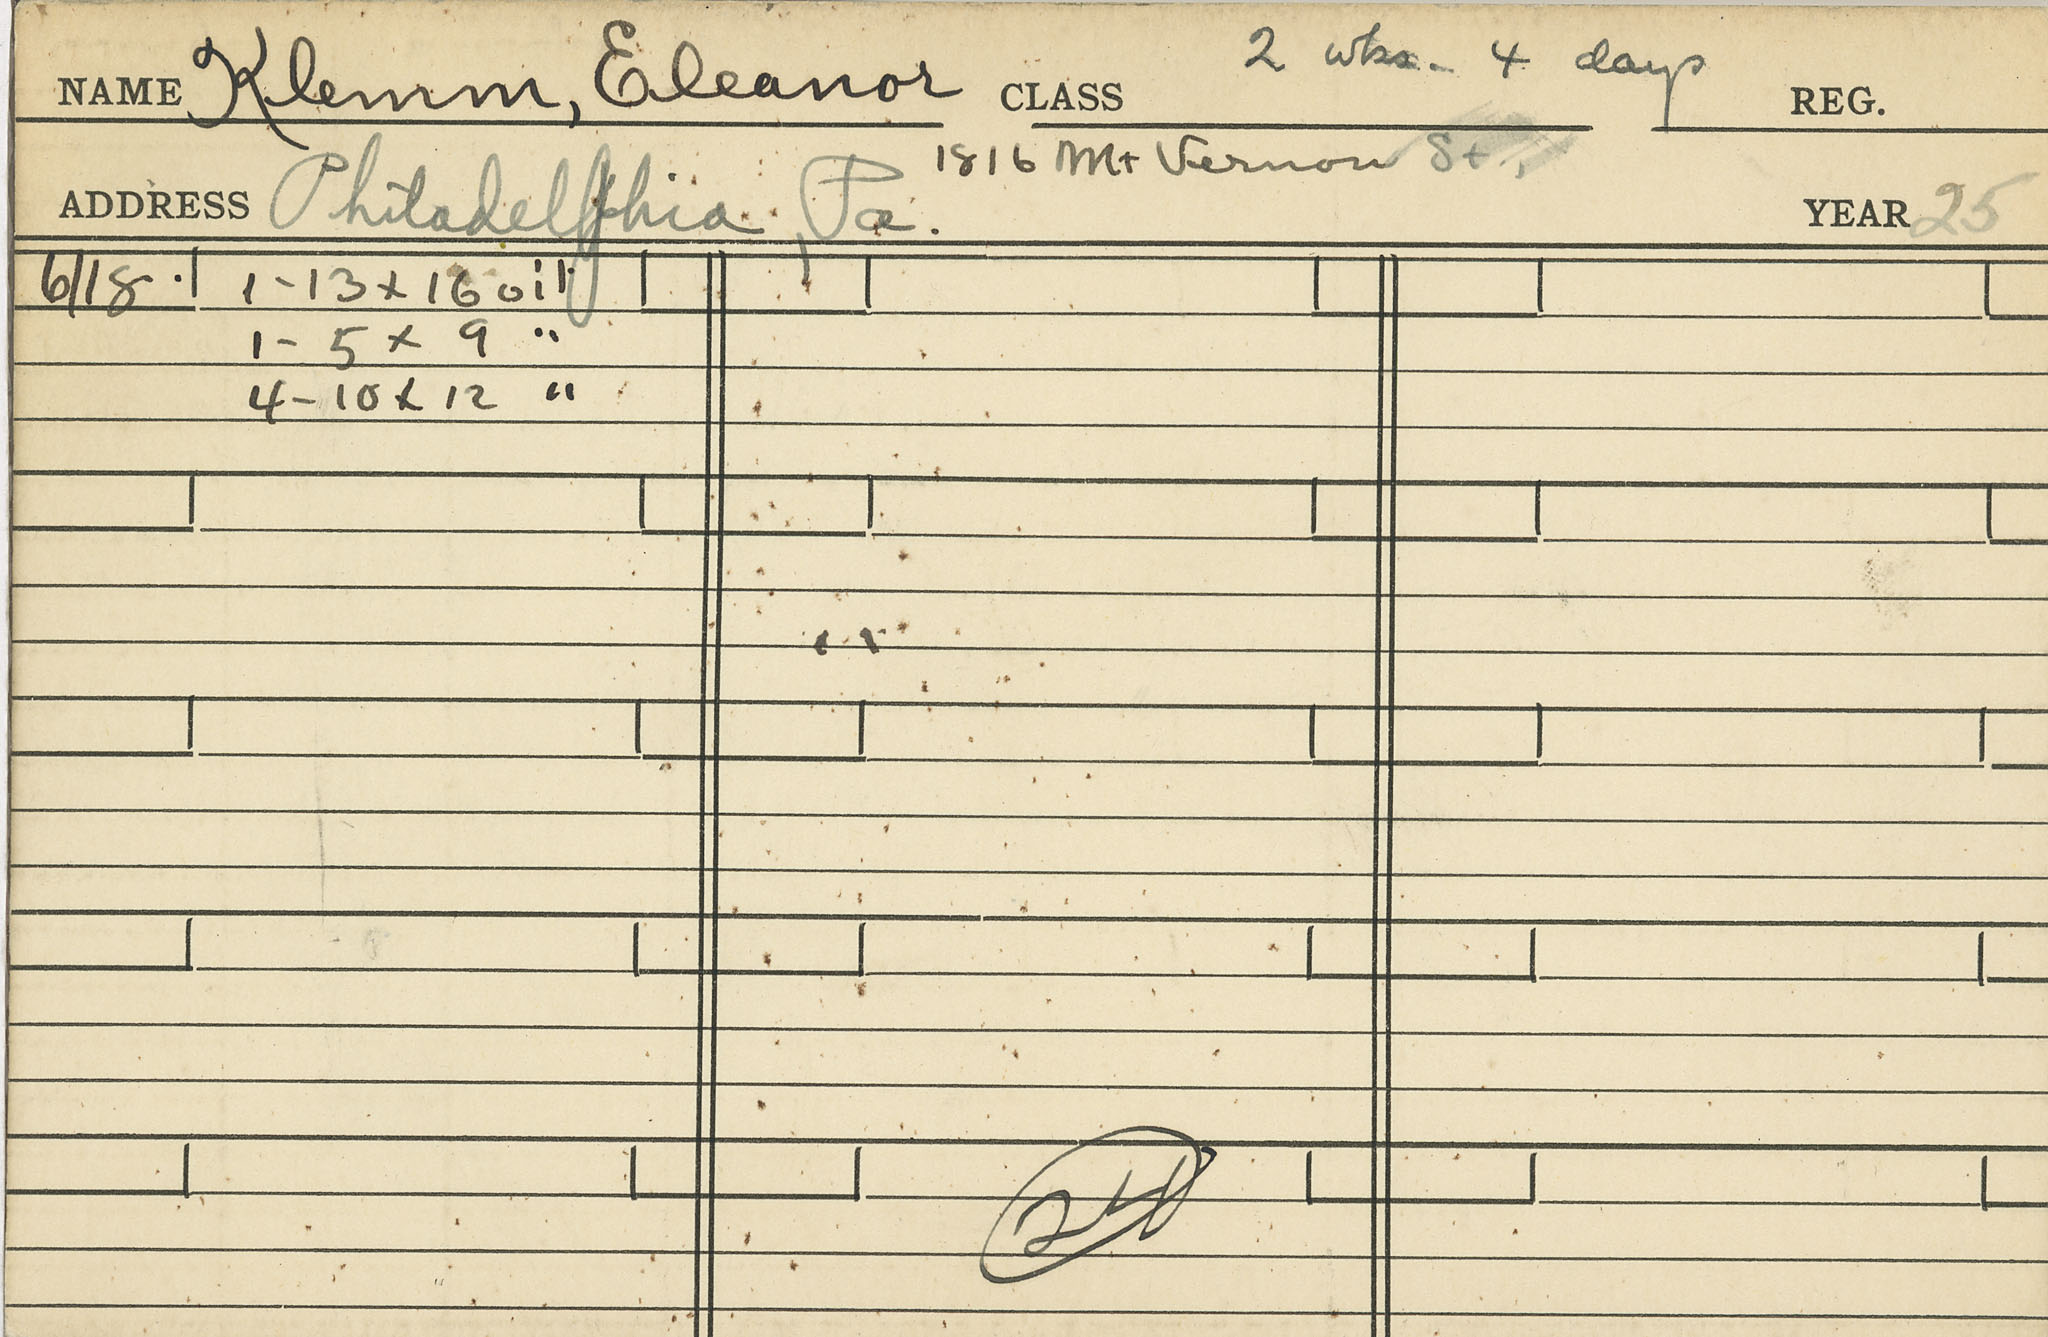 NAME Klemm, Eleanor CLASS 2 wks. 4 days REG.
1816 Mt Vernon St.,
ADDRESS Philadelphia, Pa. YEAR 25
6/18. 1-13 x 16 oil
1- 5 x 9 "
4-10 x 12 "
24